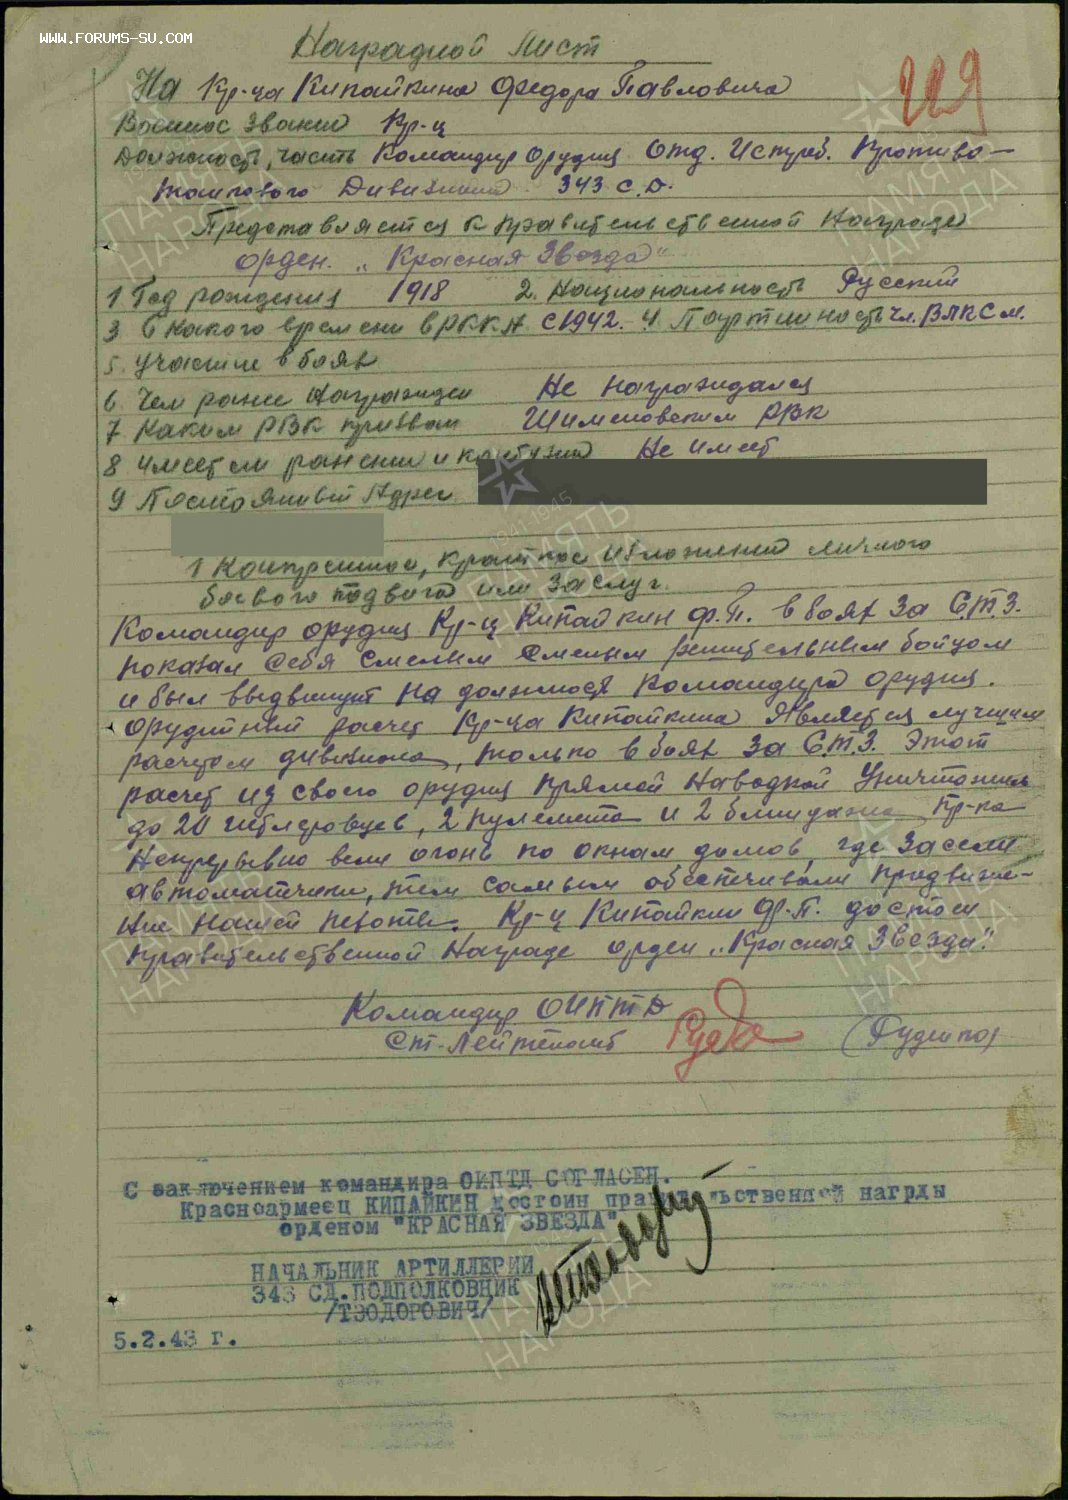 WWW.FORUMS-SU.COM
Наградной Лист
229
На Кр-ца Кипайкина Федора Павловича
Военное звание Кр-ц
Должность, часть Командир орудия Отд. Истреб. Противо-
танкового Дивизиона 343 с.д.
Представляется к правительственной Награде
орден. „Красная Звезда"
1 Год рождения 1918 2. Национальность Русский
3 С какого времени в РККА С 1942. 4. Партийность чл. ВЛКСМ.
5. участие в боях
6 Чем ранее Награжден Не награждался
7 Каким РВК призван РВК
8 имеет ли ранения и контузии Не имеет
9 Постоянный Адрес
1 Конкретное, краткое изложение личного
боевого подвига или заслуг.
Командир орудия Кр-ц Кипайкин Ф.П. в боях за С.Т.З.
показал себя смелым смелым решительным бойцом
и был выдвинут на должность командира орудия.
Орудийный расчет Кр-ца Кипайкина является лучшим
расчетом дивизиона, только в боях за С.Т.З. Этот
расчет из своего орудия прямой наводкой уничтожил
до 20 гитлеровцев, 2 пулемета и 2 блиндажа пр-ка
Непрерывно вели огонь по окнам домов, где засели
автоматчики, тем самым обеспечивали продвиже-
ние нашей пехоты. Кр-ц Кипайкин Ф.П. достоин
правительственной Награде орден „Красная Звезда".
Командир ОИПТД
Ст. Лейтенант (Руденко)
С заключением командира ОИПТД СОГЛАСЕН.
Красноармеец КИПАЙКИН достоин прави льственной нагрды
орденом "КРАСНАЯ ЗВЕЗДА"
НАЧАЛЬНИК АРТИЛЛЕРИИ
343 СД. ПОДПОЛКОВНИК
/ТЭОДОРОВИЧ/
5.2.43 г.
ПАМЯТЬ НАРОДА
1941-1945